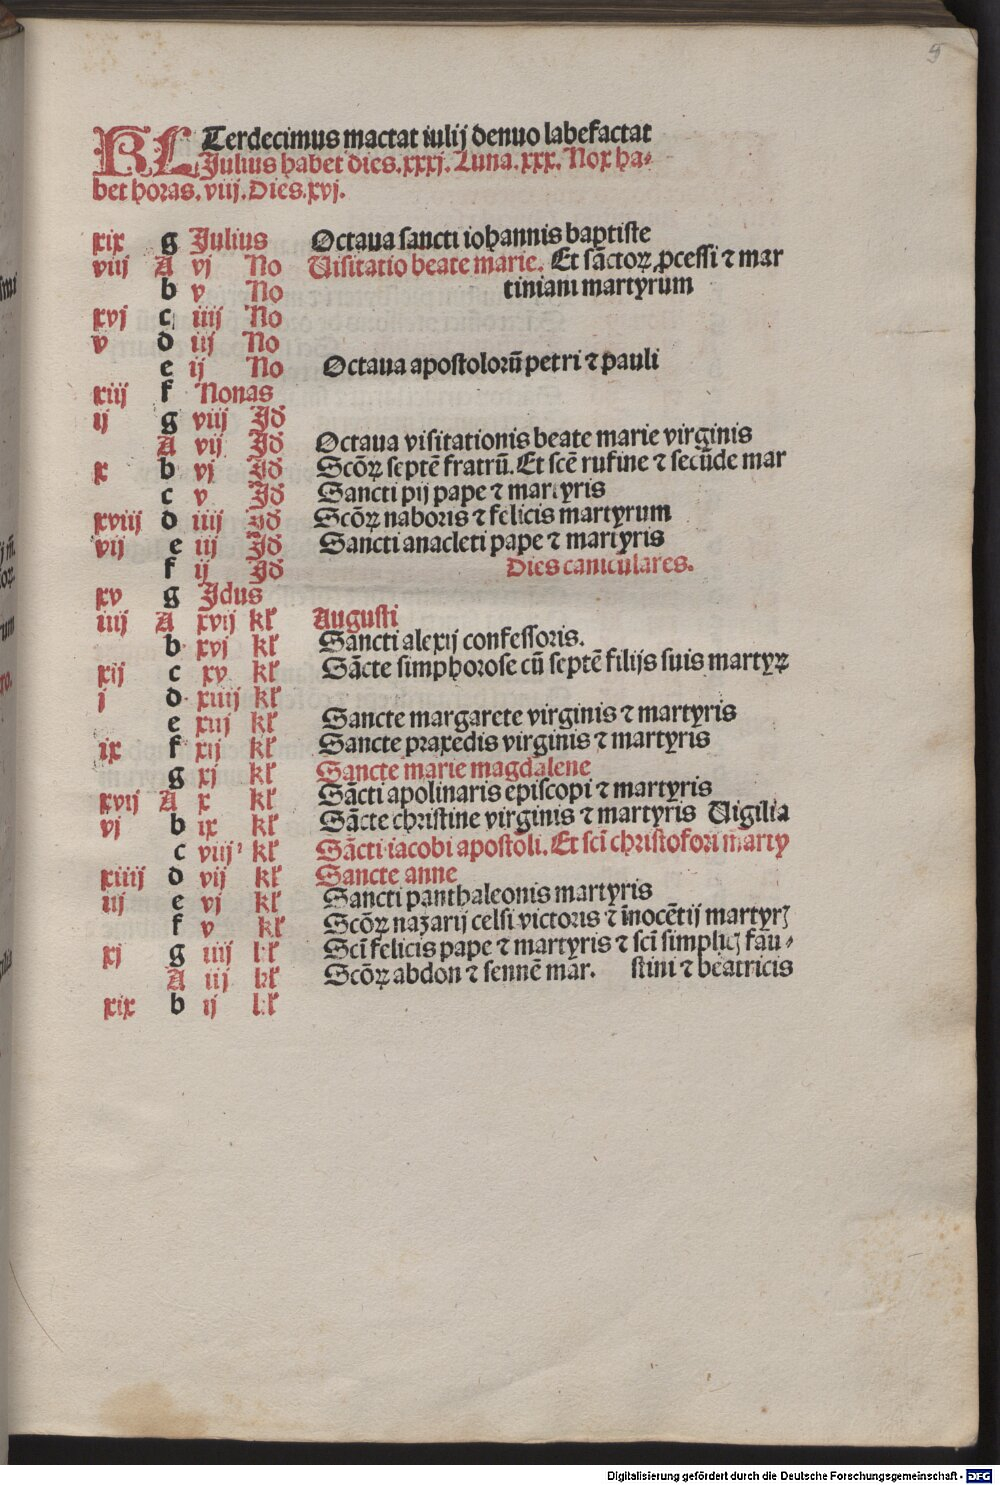 9
KL Terdecimus mactat iulij denuo labefactat
Julius habet dies.xxxj. Luna.xxx. Nox ha-
bet horas.viij. Dies.xvj.
xix g Julius Octaua sancti iohannis baptiste
viij A vj No Uisitatio beate marie. Et sãctoꝝ ꝓcessi ⁊ mar
b v No tiniani martyrum
xvj c iiij No
v d iij No
e ij No Octaua apostolorũ petri ⁊ pauli
xiij f Nonas
ij g viij Jd
A vij Jd Octaua visitationis beate marie virginis
x b vj Jd Scõꝝ septẽ fratrũ. Et scẽ rufine ⁊ secũde mar
c v Jd Sancti pij pape ⁊ martyris
xviij d iiij Jd Scõꝝ naboris ⁊ felicis martyrum
vij e iij Jd Sancti anacleti pape ⁊ martyris
f ij Jd Dies caniculares.
xv g Jdus
iiij A xvij kł Augusti
b xvj kł Sancti alexij confessoris.
xij c xv kł Sãcte simphorose cũ septẽ filijs suis martyꝝ
j d xiiij kł
e xiij kł Sancte margarete virginis ⁊ martyris
ix f xij kł Sancte praxedis virginis ⁊ martyris
g xj kł Sancte marie magdalene
xvij A x kł Sãcti apolinaris episcopi ⁊ martyris
vj b ix kł Sãcte christine virginis ⁊ martyris Uigilia
c viij kł Sãcti iacobi apostoli. Et scĩ christofori marty
xiiij d vij kł Sancte anne
iij e vj kł Sancti panthaleonis martyris
f v kł Scõꝝ nazarij celsi victoris ⁊ ĩnocẽtij martyrꝫ
xj g iiij kł Scĩ felicis pape ⁊ martyris ⁊ scĩ simplicĳ fau-
A iij kł Scõꝝ abdon ⁊ sennẽ mar. stini ⁊ beatricis
xix b ij kł
Digitalisierung gefördert durch die Deutsche Forschungsgemeinschaft - DFG